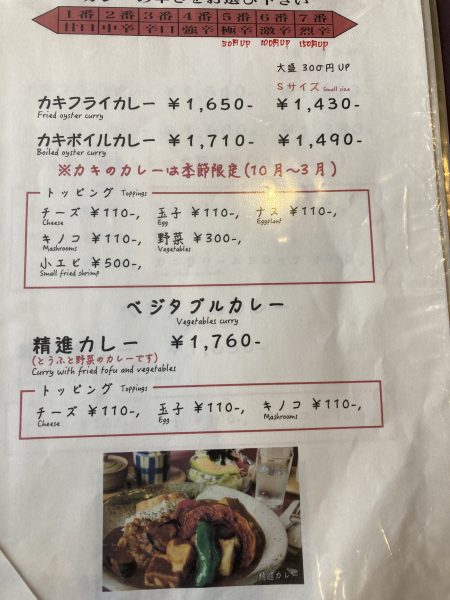 カレーの辛さをお選び下さい
1番 2番 3番 4番 5番 6番 7番
甘口 中辛 辛口 強辛 極辛 激辛 烈辛
50円UP 100円UP 150円UP
大盛 300円UP
Sサイズ Small size
カキフライカレー ¥1,650- ¥1,430-
Fried oyster curry
カキボイルカレー ¥1,710- ¥1,490-
Boiled oyster curry
※カキのカレーは季節限定(10月~3月)
トッピング Toppings
チーズ ¥110-, 玉子 ¥110-, ナス ¥110-,
Cheese Egg Eggplant
キノコ ¥110-, 野菜 ¥300-,
Mashrooms Vegetables
小エビ ¥500-,
Small fried shrimp
ベジタブルカレー
Vegetables curry
精進カレー ¥1,760-
(とうふと野菜のカレーです)
Curry with fried tofu and vegetables
トッピング Toppings
チーズ ¥110-, 玉子 ¥110-, キノコ ¥110-,
Cheese Egg Mashrooms
精進カレー